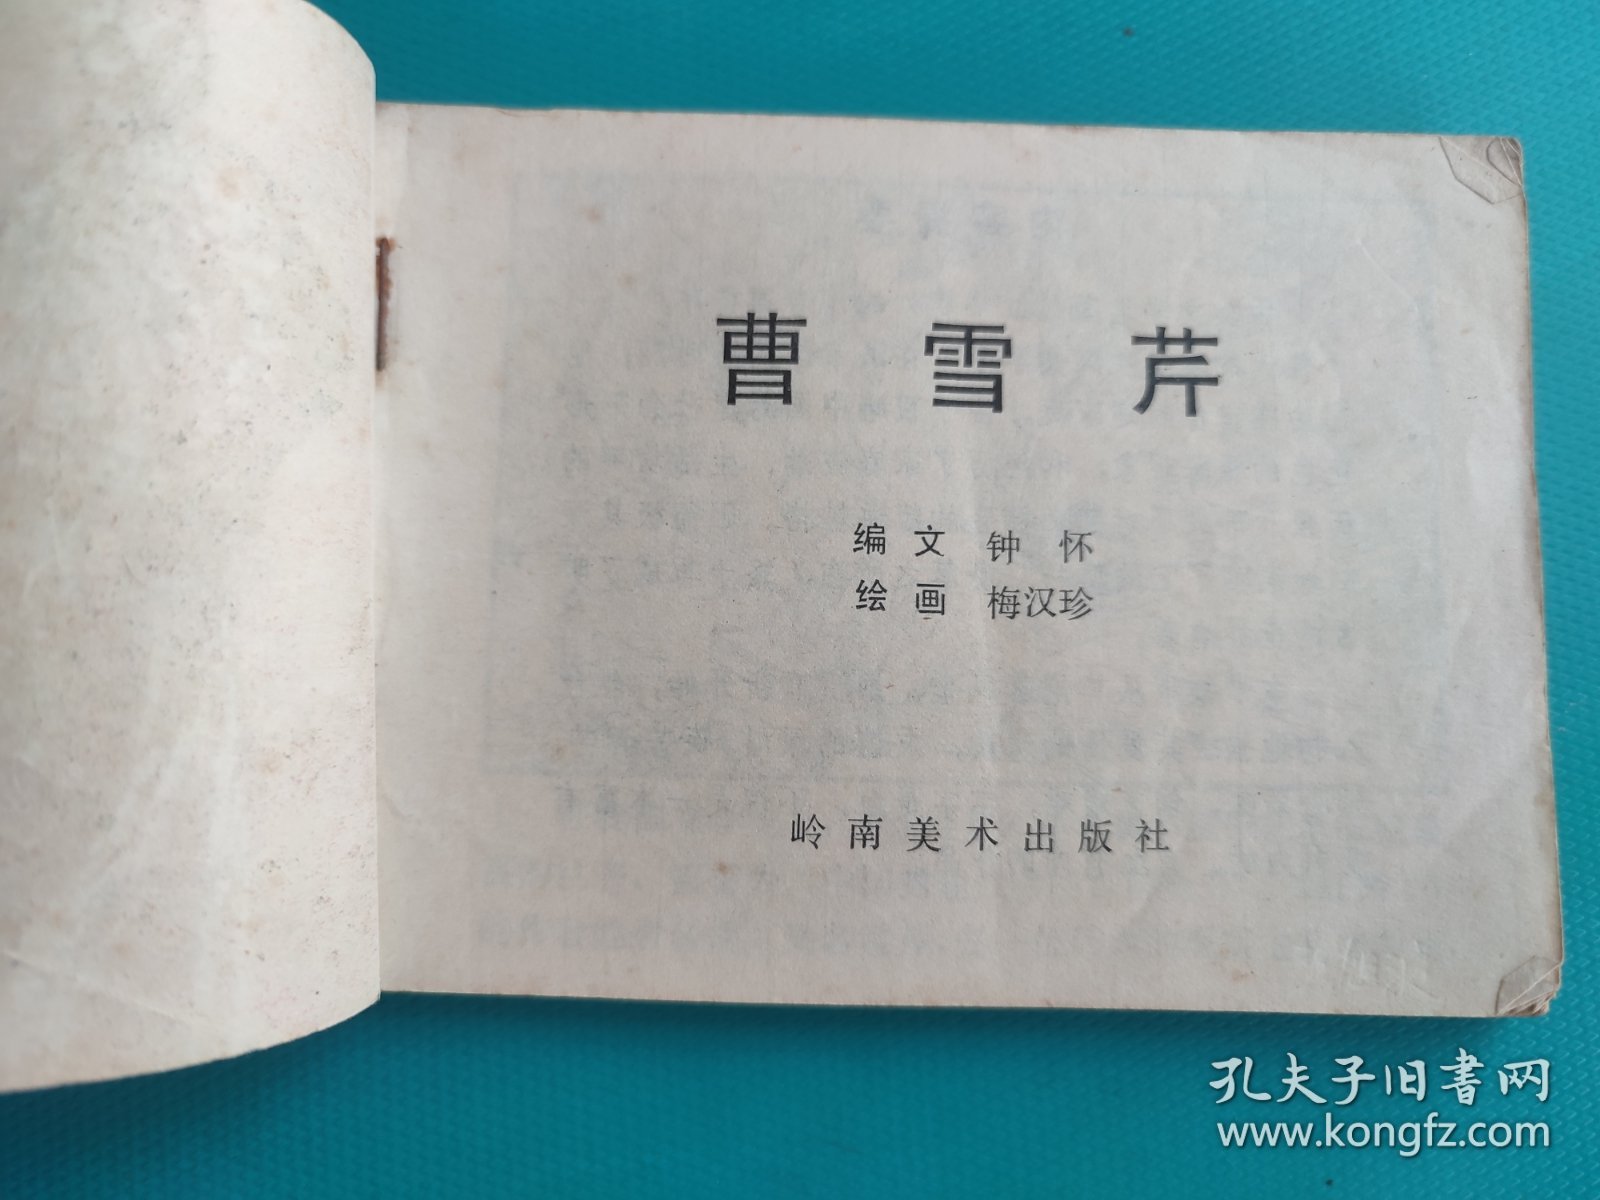 曹雪芹
编文 钟怀
绘画 梅汉珍
岭南美术出版社
孔夫子旧书网
www.kongfz.com